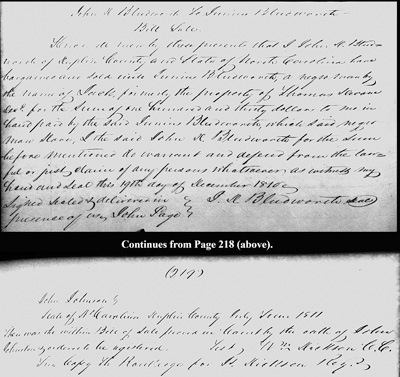 John R Bludworth To Jurine Bludworth
Bill Sale
Know all men by these presents that I John R. Blud
worth of Duplin County and State of North Carolina have
bargained and sold unto Bludworth, a negro man by
the name of formerly the property of Thomas
for the Sum of one hundred and thirty dollars to me in
hand paid by the Said Bludworth, which Said negro
man Slave, I the said John R Bludworth for the Sum
before mentioned do warrant and defend from the law-
ful or just claim of any persons whatsoever as witness my
hand and Seal this 19th day of December 1810
Signed Sealed & delivered in } J R Bludworth Seal
presence of us John Page }
Continues from Page 218 (above).
(219)
John Johnson }
State of No Carolina Duplin County July Term 1811
Then was the within Bill of Sale proved in Court by the oath of John
Johnston & ordered to be registered. Test Wm Dickson C.C.
True Copy Th Routledge for J. Dickson Reg.